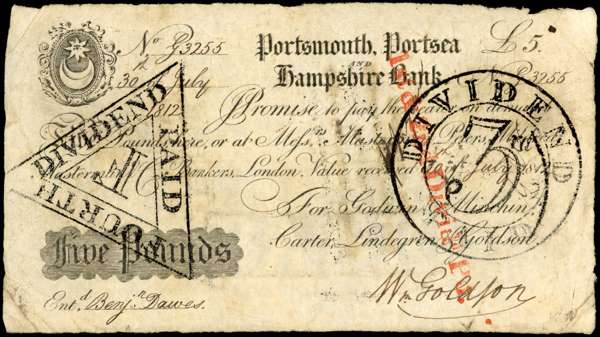 No G3255 Portsmouth, Portsea £ 5.
AND
30 July Hampshire Bank No G3255
1812 I Promise to pay the bearer on demand
Pounds here, or at Messrs
Bankers, London. Value received July
For Godwin, Minchin,
Carter, Lindegren, & Goldson.
Five Pounds
Entd. Benjn Dawes. Wm Goldson
FOURTH DIVIDEND PAID
4
DIVIDEND
3RD
PAID